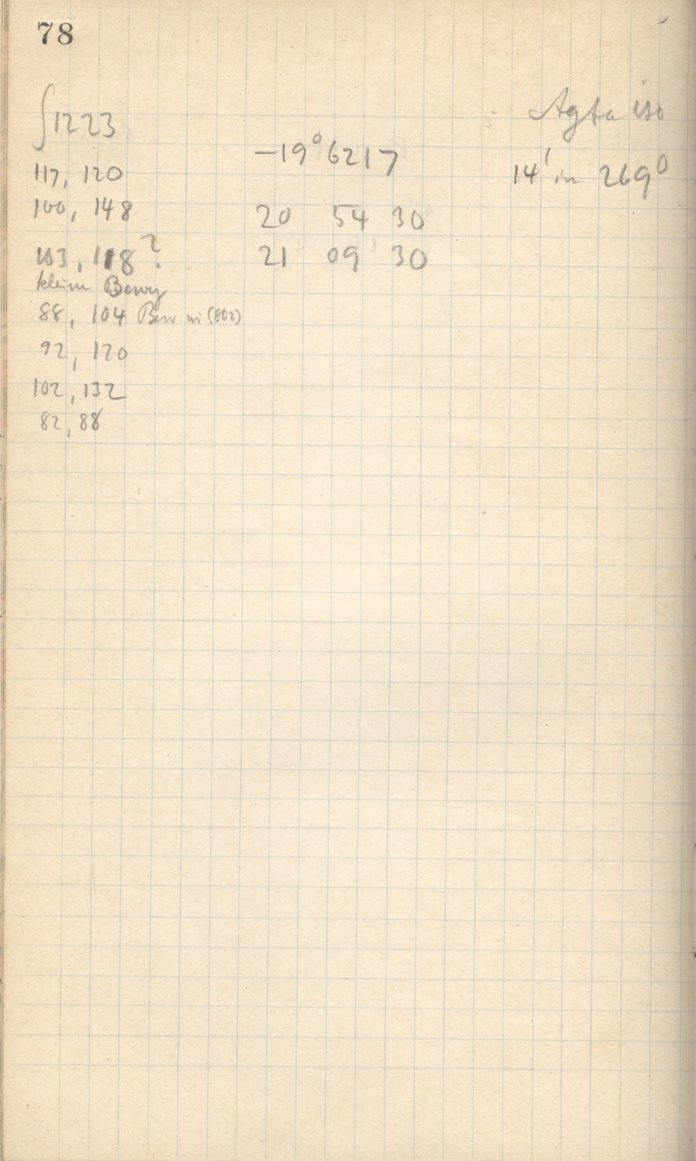 78
∫1223
117, 120
100, 148
103, 118?
kleine Beweg
88, 104 Bew in (802)
92, 120
102, 132
82, 88
−19° 6217
20 54 30
21 09 30
Agfa iso
14' in 269°